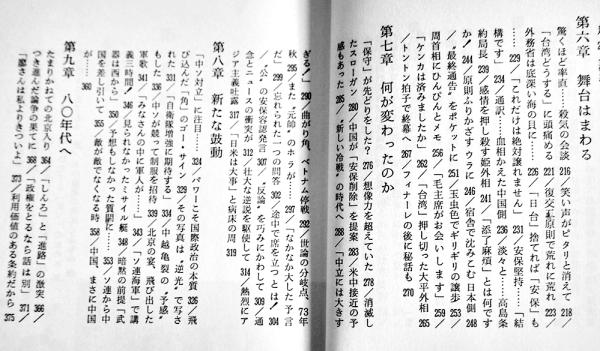 第六章　舞台はまわる
驚くほど率直……殺気の会談 216／笑い声がピタリと消えて 218／
「台湾どうする」に頭痛める 221／"復交三原則"で荒れに荒れ 223／
外務省は底深い海の貝に…… 226／「日台」捨てれば「安保」も
…… 229／「これだけは絶対譲れません」 231／安保堅持……「結
構です」 234／通訳……血相かえた中国側 236／淡々と……高島条
約局長 239／感情を押し殺す姫外相 241／「添了麻煩」とは何です
か 244／原則ふりかざすウラに 246／宿舎で沈みこむ日本側 248
／"最終通告"をポケットに 251／玉虫色でギリギリの譲歩 253／
周首相にひんぴんとメモ 256／「毛主席がお会いします」 259／
「ケンカは済みましたか」 262／「台湾」押し切った大平外相 265
／トントン拍子で終幕へ 267／フィナーレの後に秘話も 270
第七章　何が変わったのか
「保守」が先どりをした？ 276／想像力を超えていた 278／消滅し
たスローガン 280／中国が「安保削除」を提案 283／米中接近の予
感もあった 285／"新しい冷戦"の時代へ 288／「中立には大きす
ぎる！」 290／曲がり角、ベトナム停戦 292／世論の分岐点、73年
秋 295／また"元帥"のホラが…… 297／「なかなか大した予言
だ」 299／忘れられた一つの問答 302／途中で席を立つとは！ 304
／"公"の安保容認発言 307／"反論"を巧みにかわして 309／通
念とニュースの衝突が 312／壮大な逆説を駆使して 314／熱烈にア
ジア主義吐露 317／「日米は大事」と病床の周 319
第八章　新たな鼓動
「中ソ対立」に注目…… 324／パワーこそ国際政治の本質 326／飛
び込んだ「一角」のゴー・サイン 329／その写真は"逆光"で写さ
れた 331／「自衛隊増強に期待する」 334／中越亀裂の"予感"
もした 336／中ソが競って制服を招待 339／北京の宴、飛び出した
軍歌 341／「みなさんの中に軍人が……」 343／"ソ連海軍"で講
義三時間 346／見られなかったミサイル艇 348／暗黙の前提「武
器は西から」 350／予想もしなかった質問に…… 353／ソ連から中
国を差し引いて 355／敵が敵でなくなる時 358／中国、まさに中国
が…… 360
第九章　八〇年代へ
たまりかねての北京入り 364／「しんろ」と「進路」の激突 366／
つき進んだ論争の果てに 368／「政権をとるなら話は別」 371／
「廖さんは私よりきついよ」 373／利用価値のある条約だから 375